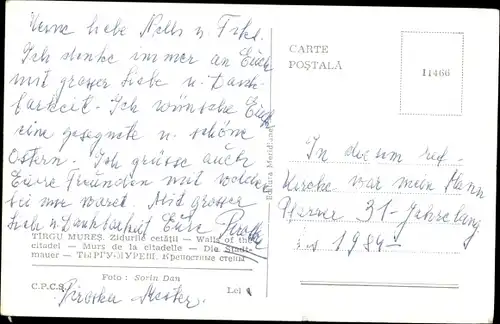 Meine liebe Nelly u. Frl.
Ich denke immer an Euch
mit grosser Liebe u. Dank-
barkeit. Ich wünsche Euch
eine gesegnete u. schöne
Ostern. Ich grüsse auch
Eure Freunden mit welche
bei mir waret. Mit grosser
Liebe u Dankbarkeit Eure Piroska
TÎRGU MUREȘ. Zidurile cetății — Walls of the
citadel — Murs de la citadelle — Die Stadt-
mauer — ТЫРГУ-МУРЕШ. Крепостные стены
Foto : Sorin Dan
C.P.C.S. Lei
Piroska
Editura Meridiane
CARTE
POȘTALĂ
11466
In diesem ref.
Kirche war mein Mann
Pfarrer 31-Jahrelang
bis 1984-